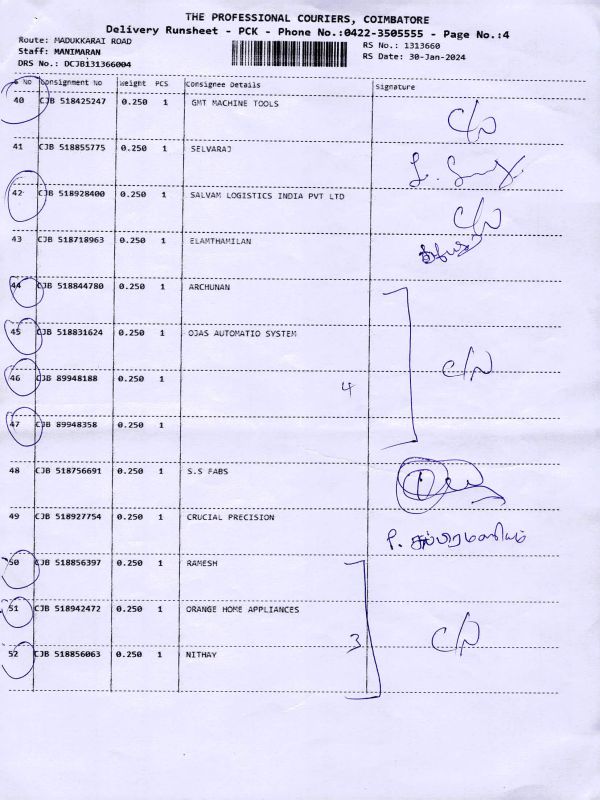 THE PROFESSIONAL COURIERS, COIMBATORE
Delivery Runsheet - PCK - Phone No.:0422-3505555 - Page No.:4
Route: MADUKKARAI ROAD
Staff: MANIMARAN
DRS No.: DCJB131366004
RS No.: 1313660
RS Date: 30-Jan-2024
S No Consignment No Weight PCS Consignee Details Signature
40 CJB 518425247 0.250 1 GMT MACHINE TOOLS
41 CJB 518855775 0.250 1 SELVARAJ
42 CJB 518928400 0.250 1 SALVAM LOGISTICS INDIA PVT LTD
43 CJB 518718963 0.250 1 ELAMTHAMILAN
44 CJB 518844780 0.250 1 ARCHUNAN
45 CJB 518831624 0.250 1 OJAS AUTOMATIO SYSTEM
46 CJB 89948188 0.250 1 4
47 CJB 89948358 0.250 1
48 CJB 518756691 0.250 1 S.S FABS
49 CJB 518927754 0.250 1 CRUCIAL PRECISION
50 CJB 518856397 0.250 1 RAMESH
51 CJB 518942472 0.250 1 ORANGE HOME APPLIANCES
3
52 CJB 518856063 0.250 1 NITHAY